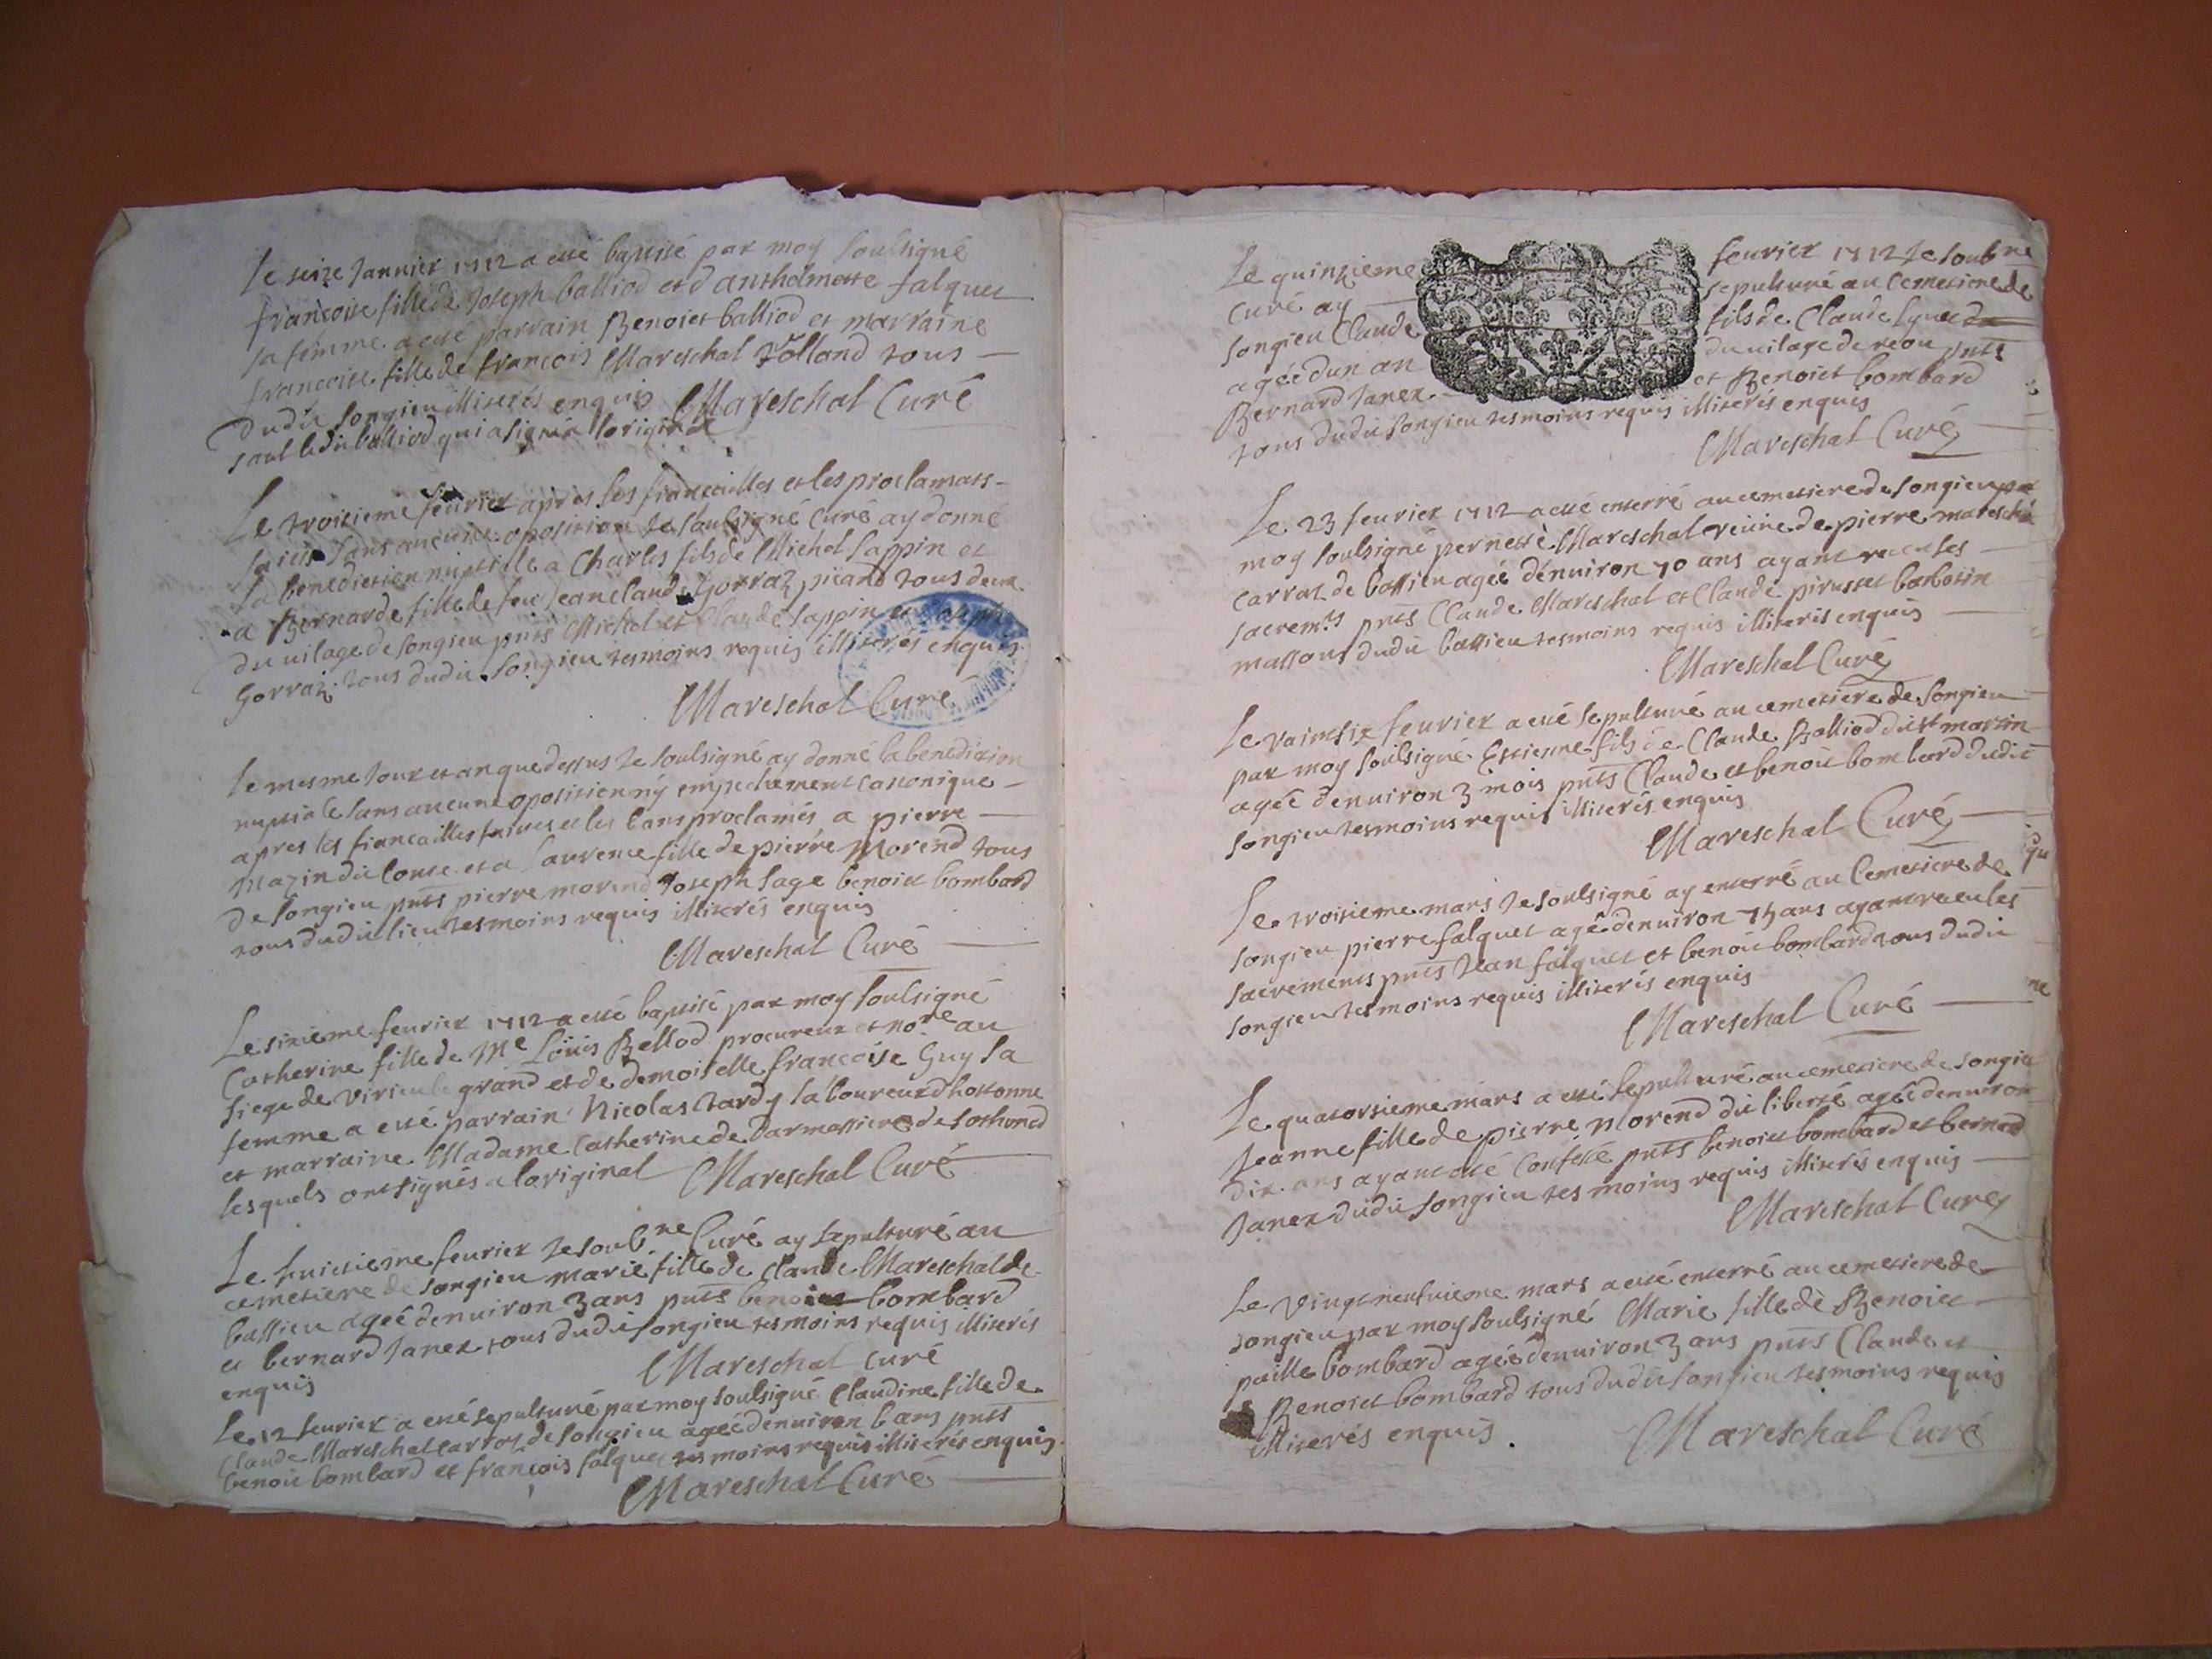 Le seize Janvier 1712 a esté baptisé par moy soulsigné
francoise fille de Joseph balliod et d'anthelmette falquet
sa femme a esté parrain Benoiet balliod et marraine
francoise fille de francois Mareschal Volland tous
dudit songieu illiterés enquis Mareschal Curé
sauf ledit balliod qui a signé a l'original
Le troisieme feurier apres les fiancailles et les proclamats
faites sans aucune oposition Je soulsigné Curé ay donné
la benediction nuptiale a Charles fils de Michel sappin et
a Bernarde fille de feu Jean claude Gorraz piand tous deux
du uilage de songieu pnts Michel et Claude sappin et
Gorraz tous dudit songieu tesmoins requis illiterés enquis
Mareschal Curé
Le mesme Jour et an que dessus Je soulsigné ay donné la benediction
nuptiale sans aucune oposition ny empechement canonique
apres les fiancailles faites et les bans proclamés a pierre
mazin dit Conte et a Laurence fille de pierre Morend tous
de songieu pnts pierre morend Joseph sage benoiet bombard
tous dudit lieu tesmoins requis illiterés enquis
Mareschal Curé
Le sixieme feurier 1712 a esté baptisé par moy soulsigné
Catherine fille de Me Loüis Bellod procureur et nore au
siege de virieu le grand et de demoiselle francoise Guy sa
femme a esté parrain Nicolas tardy laboureur d'hostonne
et marraine Madame Catherine de Darmassiere de
lesquels ont signés a l'original Mareschal Curé
Le huictieme feurier Je soulne Curé ay sepulturé au
cemetiere de songieu marie fille de Claude Mareschal de
bassieu agée d'enuiron 3 ans pnts benoiet bombard
et bernard Janex tous dudit songieu tesmoins requis illiterés
enquis Mareschal Curé
Le 12 feurier a esté sepulturé par moy soulsigné Claudine fille de
Claude Mareschal carroz de songieu agée d'enuiron 6 ans pnts
benoit bombard et françois falquet tesmoins requis illiterés enquis
Mareschal Curé
Le quinzieme feurier 1712 Je soubne
Curé ay sepulturé au Cemetiere de
songieu Claude fils de Claude
agée d'un an du uilage de pnts
Bernard Janex et Benoiet bombard
tous dudit songieu tesmoins requis illiterés enquis
Mareschal Curé
Le 23 feurier 1712 a esté enterré au cemetiere de songieu par
moy soulsigné pernette Mareschal veuue de pierre mareschal
carraz de bassieu agée d'énuiron 70 ans ayant receu ses
sacremts pnts Claude Mareschal et Claude pirusset barbotin
massons dudit bassieu tesmoins requis illiterés enquis
Mareschal Curé
Le vaintsix feurier a esté sepulturé au cemetiere de songieu
par moy soulsigné Estienne fils de Claude Balliod dit st martin
agée d'enuiron 3 mois pnts Claude et benoit bombard dudit
songieu tesmoins requis illiterés enquis
Mareschal Curé
Le troisieme mars Je soulsigné ay enterré au Cemetiere de
songieu pierre falquet agé d'enuiron 75 ans ayant receu les
sacrements pnts Jean falquet et benoit bombard tous dudit
songieu tesmoins requis illiterés enquis
Mareschal Curé
Le quatorsieme mars a esté sepulturé au cemetiere de songieu
Jeanne fille de pierre Morend dit liberté agée d'enuiron
dix ans ayant esté Confessé pnts benoiet bombard et bernard
Janex dudit songieu tesmoins requis illiterés enquis
Mareschal Curé
Le vingt neufuieme mars a esté enterré au cemetiere de
songieu par moy soulsigné Marie fille de Benoiet
paille bombard agée d'enuiron 3 ans pnts Claude et
Benoiet bombard tous dudit songieu tesmoins requis
illiterés enquis. Mareschal Curé